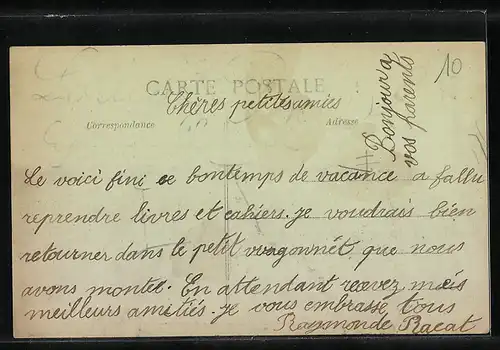 10
CARTE POSTALE
Chères petites amies
Correspondance
Adresse
Bonjour a
vos parents
Le voici fini ce bontemps de vacance a fallu
reprendre livres et cahiers. je voudrais bien
retourner dans le petit wagonnet que nous
avons montée. En attendant recevez mes
meilleurs amitiés. je vous embrasse tous
Raymonde Racat